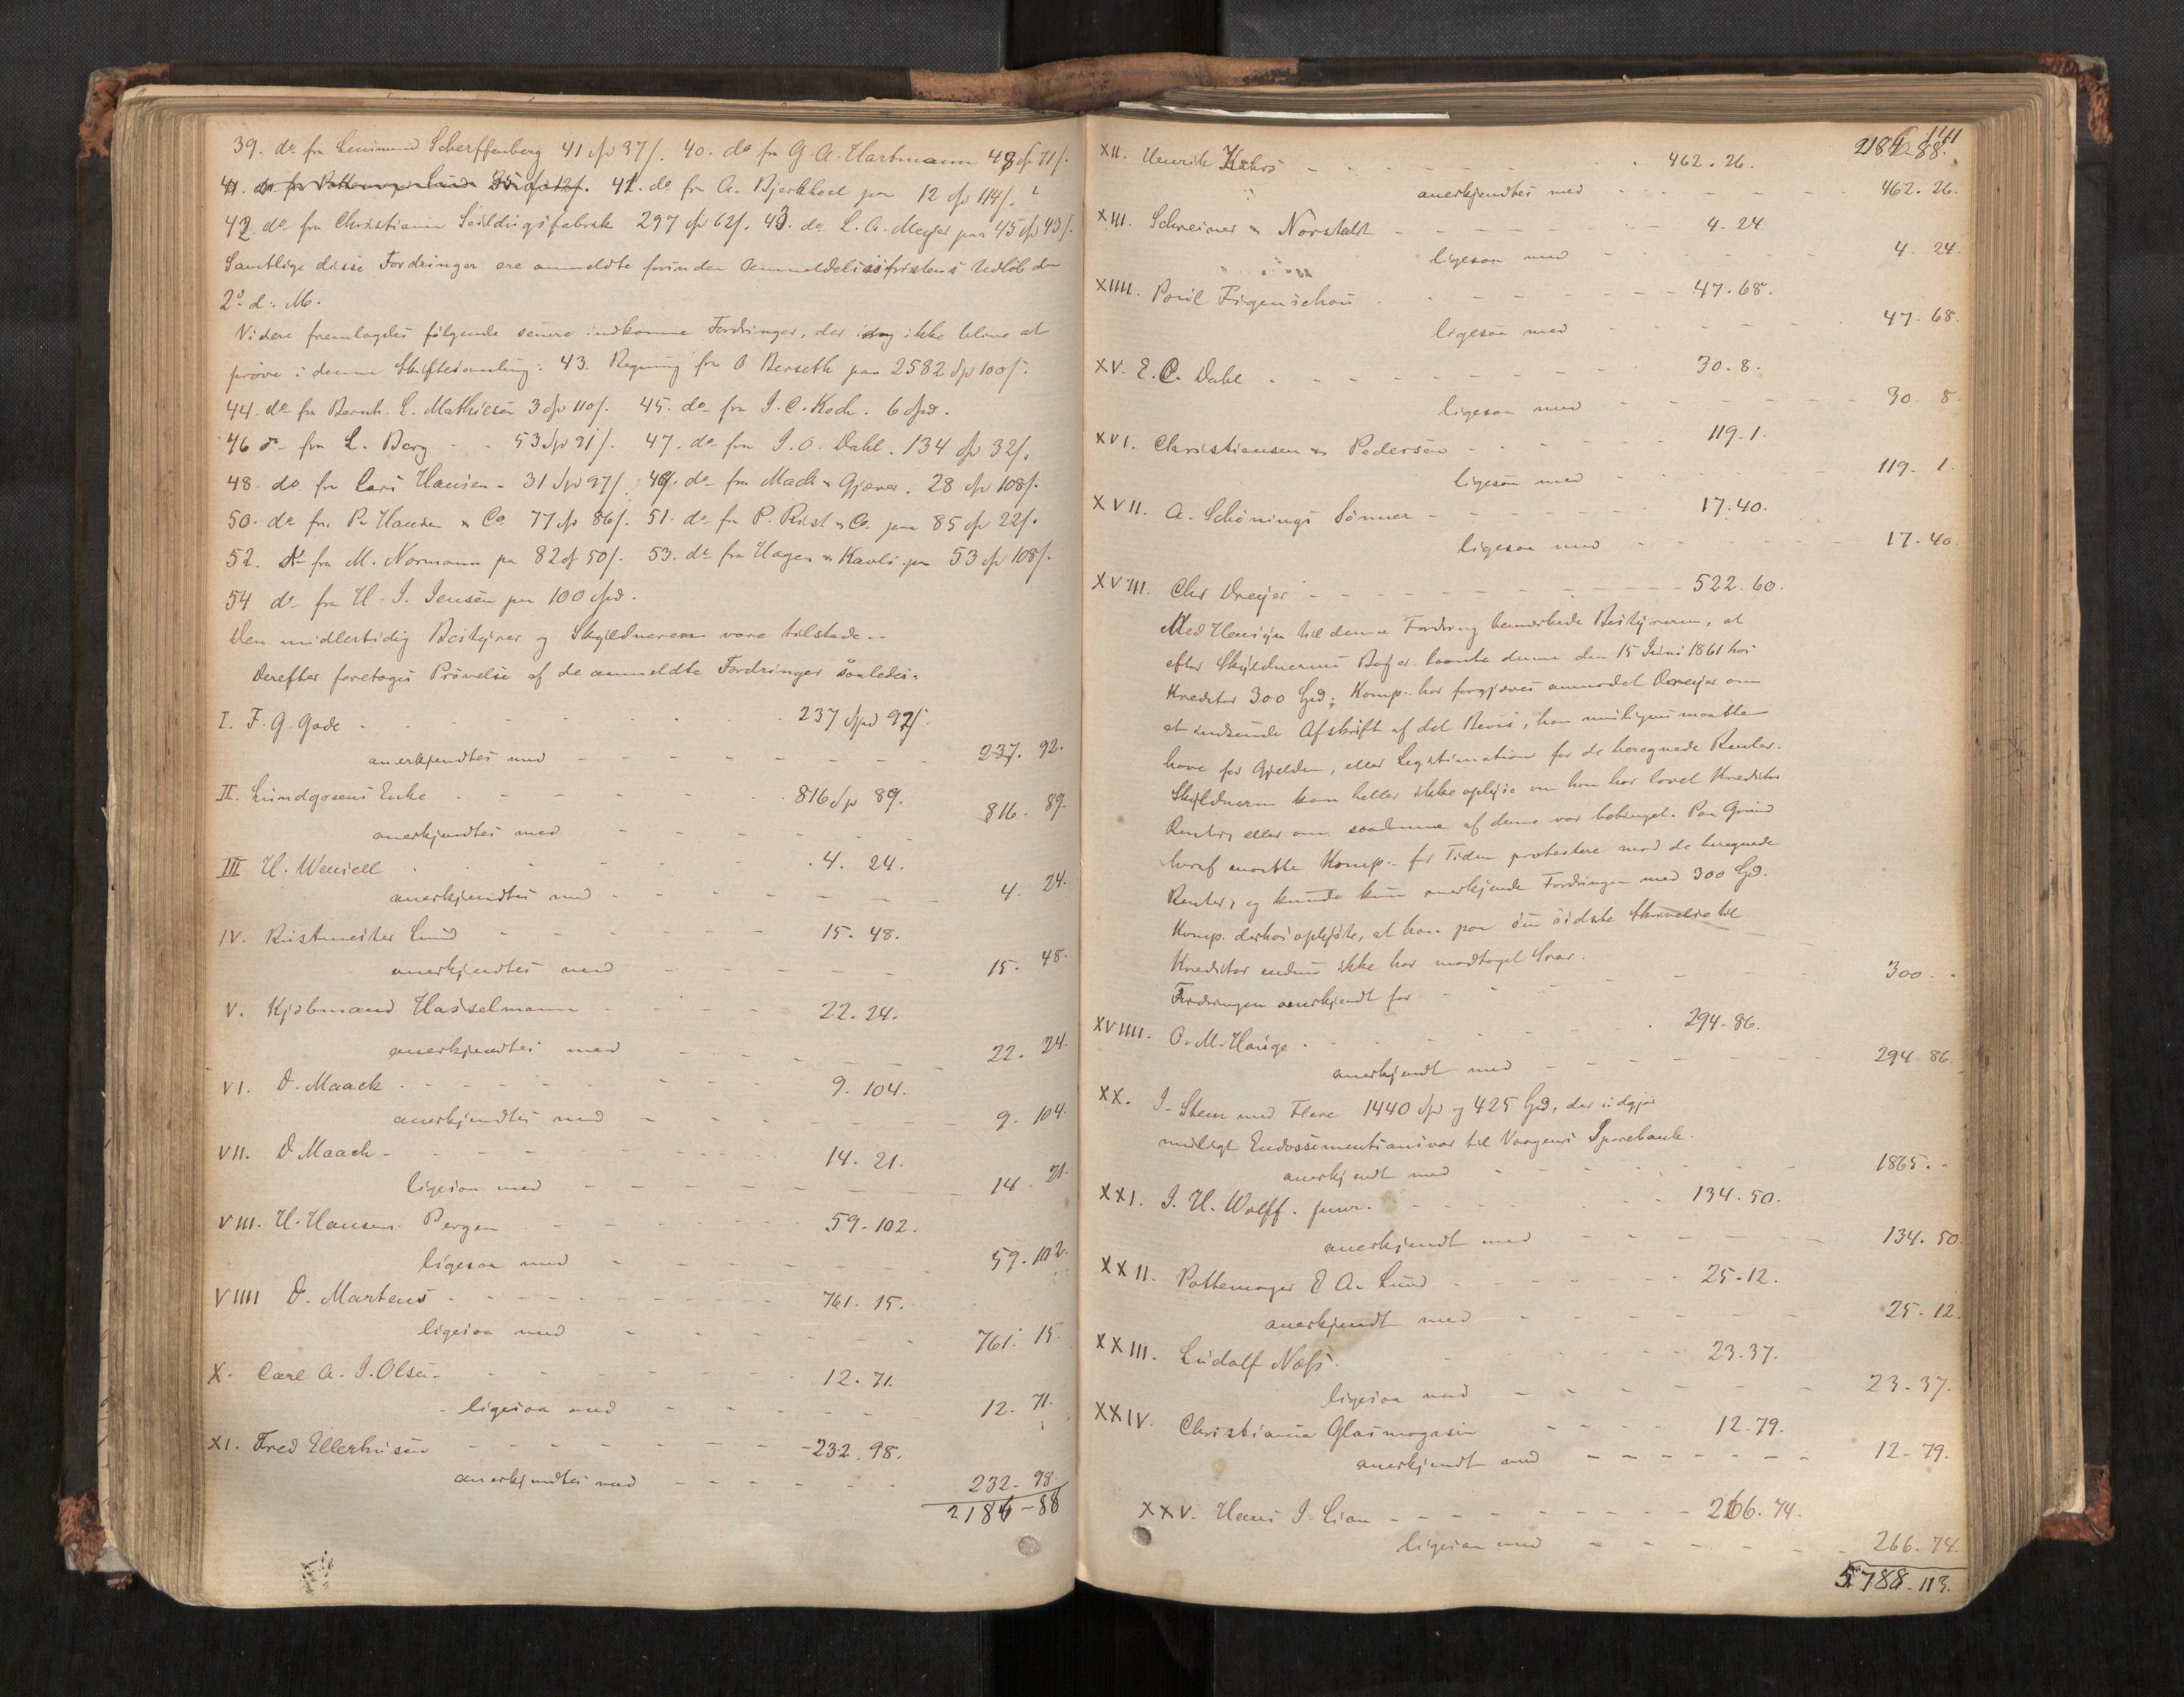 39. do fra Scherffenberg 41 spd 37 s. 40. do fra G. A. Hartmann 48 spd 71 s.
41. do fra Pottemager Lund 41. do fra A. Bjerkkoel paa 12 spd 114 s.
42. do fra Christiania Seildugsfabrik 297 spd 62 s. 43. do L. A. Meyer paa 45 spd 43 s.
Samtlige disse Fordringer ere anmeldte forinden Anmeldelsesfristens Udløb den
2den d. M.
Videre fremlagdes følgende senere indkomne Fordringer, der idag ikke bleve at
prøve i denne Skiftesamling: 43. Regning fra O Berseth paa 2582 spd 100 s.
44. do fra Bernh. L. Mathiesen 3 spd 110 s. 45. do fra J. C. Koch. 6 spd.
46 do fra L. Berg - - 53 spd 91 s. 47. do fra J. O. Dahl. 134 spd 32 s.
48. do fra Lars Hansen - 31 spd 97 s. 49. do fra Mack & Gjæver. 28 spd 108 s.
50. do fra P. Hansen & Co 77 spd 86 s. 51. do fra P. Rist & Co. paa 85 spd 22 s.
52. do fra M. Normann pa 82 spd 50 s. 53. do fra Hagen & Kavli paa 53 spd 108 s.
54 do fra H. J. Jensen paa 100 spd.
Den midlertidig Bestyrer og Skyldneren vare tilstede.
Derefter foretoges Prøvelse af de anmeldte Fordringer saaledes.
I. F. G. Gade - 237 spd 92 s.
anerkjendtes med - 237. 92.
II. Lundgreens Enke - 816 spd 89.
anerkjendtes med - 816. 89.
III H. Wensell - 4. 24.
anerkjendtes med - 4. 24.
IV. Rustmester Lund - 15. 48.
anerkjendtes med - 15. 48.
V. Kjøbmand Hasselmann - 22. 24.
anerkjendtes med - 22. 24.
VI. D. Maack - 9. 104.
anerkjendtes med - 9. 104.
VII. D Maack - 14. 21.
ligesaa med - 14. 21.
VIII. H. Hansen Bergen - 59. 102.
ligesaa med - 59. 102.
VIIII D. Martens - 761. 15.
ligesaa med - 761. 15.
X. Carl A. J. Olsen - 12. 71.
ligesaa med - 12. 71.
XI. Fred Ellerhusen - 232. 98.
anerkjendtes med - 232. 98.
2186 - 88
141
2186 - 88.
XII. Henrik Kahrs - 462. 26.
anerkjendtes med - 462. 26.
XIII. Schreiner & Norstedt - 4. 24.
ligesaa med - 4. 24.
XIIII. Povil Figenschou - 47. 68.
ligesaa med - 47. 68.
XV. E. C. Dahl - 30. 8.
ligesaa med - 30. 8.
XVI. Christiansen & Pedersen - 119. 1.
ligesaa med - 119. 1.
XVII. A. Schönings Sönner - 17. 40.
ligesaa med - 17. 40.
XVIII. Chr Dreyer - 522. 60.
Med Hensyn til denne Fordring bemærkede Bestyreren, at
efter Skyldnerens Bøger laante denne den 15 Juni 1861 hos
Kreditor 300 Spd; Komp. har forgjæves anmodet Dreyer om
at indsende Afskrift af det Bevis, han muligens maatte
have for Gjælden, eller Legitimation for de beregnede Renter.
Skyldneren kan heller ikke oplyse om han har lovet Kreditor
Renter, eller om saadanne af denne var betinget. Paa Grund
heraf maatte Komp. for Tiden protestere mod de beregnede
Renter, og kunde kun anerkjende Fordringen med 300 Spd.
Komp. derhos oplyste, at han paa sin sidste Skrivelse til
Kreditor endnu ikke har modtaget Svar.
Fordringen anerkjendt for - 300. -
XVIIII. O. M. Hauge - 294. 86.
anerkjendt med - 294. 86.
XX. J. Steen med Flere 1440 spd og 425 Spd, der udgjør
muligt Endossementsansvar til Vaagens Sparebank.
anerkjendt med - 1865. -
XXI. J. H. Wolff. junr. - 134. 50.
anerkjendt med - 134. 50
XXII. Pottemager E A. Lund - 25. 12.
anerkjendt med - 25. 12.
XXIII. Ludolf Næss. - 23. 37.
ligesaa med - 23. 37.
XXIV. Christiania Glasmagasin - 12. 79.
anerkjendt med - 12. 79.
XXV. Hans J. Lian - 266. 74.
ligesaa med - 266. 74.
5788. 113.